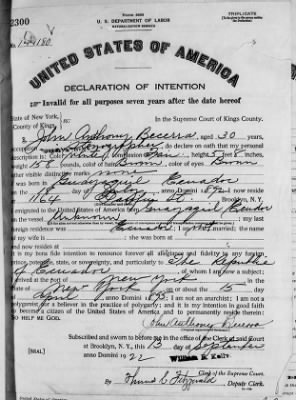 2300
Form 2203
TRIPLICATE
U. S. DEPARTMENT OF LABOR
NATURALIZATION SERVICE
No.
UNITED STATES OF AMERICA
DECLARATION OF INTENTION
Invalid for all purposes seven years after the date hereof
State of New York,
County of Kings,
ss:
In the Supreme Court of Kings County.
I, John Anthony Becerra, aged 30 years,
occupation, do declare on oath that my personal
description is: Color White, complexion, height 5 feet 8 inches,
weight 158 pounds, color of hair Brown, color of eyes Brown
other visible distinctive marks none
I was born in Guayaquil Ecuador
on the day of July, anno Domini 1892; I now reside
at 1164 St, Brooklyn, N. Y.
I emigrated to the United States of America from Guayaquil Ecuador
on the vessel Unknown; my last
foreign residence was Ecuador; I am not married; the name
of my wife is; she was born at
and now resides at
It is my bona fide intention to renounce forever all allegiance and fidelity to any foreign
prince, potentate, state, or sovereignty, and particularly to The Republic
of Ecuador, of whom I am now a subject;
I arrived at the port of New York, in the
State of New York, on or about the 15 day
of April, anno Domini; I am not an anarchist; I am not a
polygamist nor a believer in the practice of polygamy; and it is my intention in good faith
to become a citizen of the United States of America and to permanently reside therein:
SO HELP ME GOD.
John Anthony Becerra
Subscribed and sworn to before me in the office of the Clerk of said Court
at Brooklyn, N. Y., this 13 day of September
[SEAL]
anno Domini 1922
William E. Kelly
Clerk of the Supreme Court.
By, Deputy Clerk.